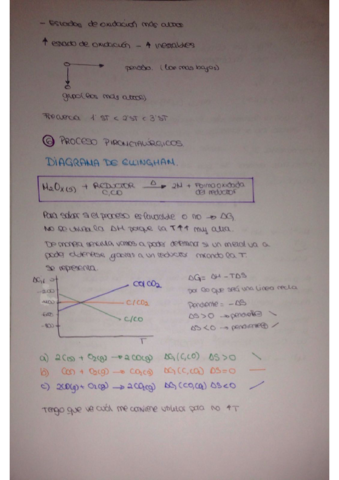 - Estados de oxidación más altos
↑ estado de oxidación - ↑ inestables
periodo (los más bajos)
grupo (los más altos)
Recursos 1 ST < 2 ST < 3 ST
② PROCESO PIROMETALÚRGICOS
DIAGRAMA DE ELLINGHAM.
M₂Ox(s) + REDUCTOR C,CO →Δ 2M + Forma oxidada del reductor
Para saber si el proceso es favorable o no → ΔG
No se utiliza la ΔH porque la T ↑↑↑ muy altas.
De manera sencilla vamos a poder determinar si un metal va a
poder obtenerse gracias a un reductor mirando la T
Se representa
ΔG
CO/CO₂
C/CO₂
C/CO
T
ΔG = ΔH - TΔS
por lo que será una línea recta
Pendiente = -ΔS
ΔS>0 → pendiente ⊖ \
ΔS<0 → pendiente ⊕ /
a) 2C(s) + O₂(g) → 2CO(g) ΔG₁(C,CO) ΔS>0 \
b) C(s) + O₂(g) → CO₂(g) ΔG₂(C,CO₂) ΔS=0 —
c) 2CO(g) + O₂(g) → 2CO₂(g) ΔG₃(CO,CO₂) ΔS<0 /
Tengo que ver cuál me conviene utilizar para no ↑T